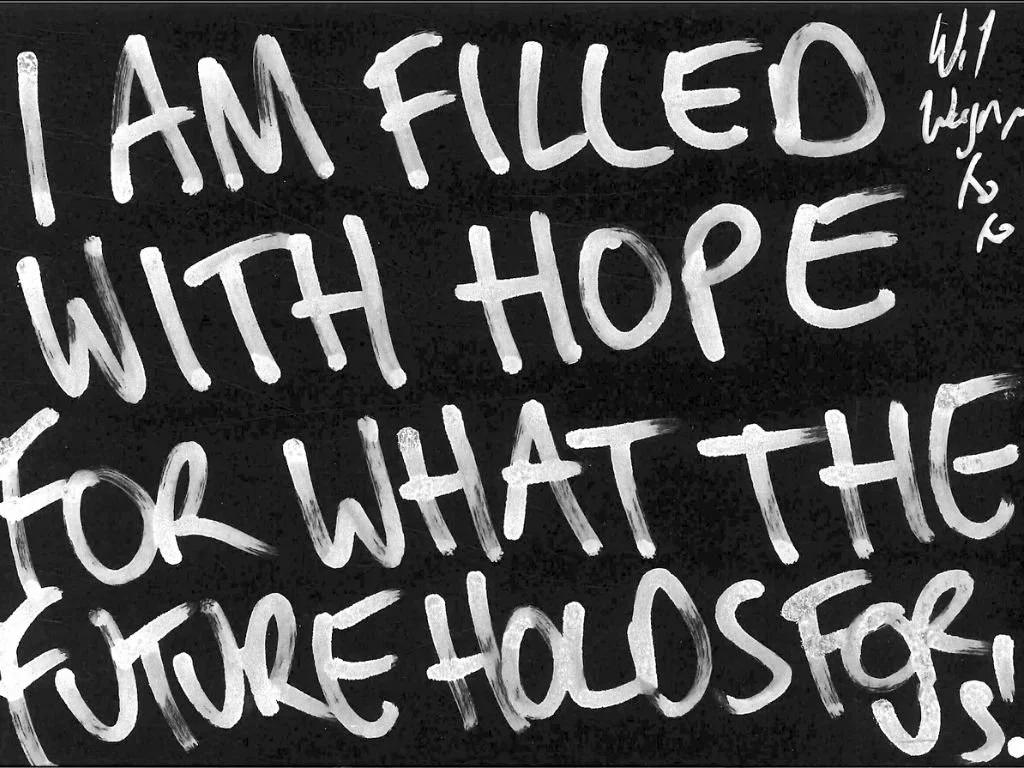 I AM FILLED
WITH HOPE
FOR WHAT THE
FUTURE HOLDS FOR
US!
Wil
Wagner